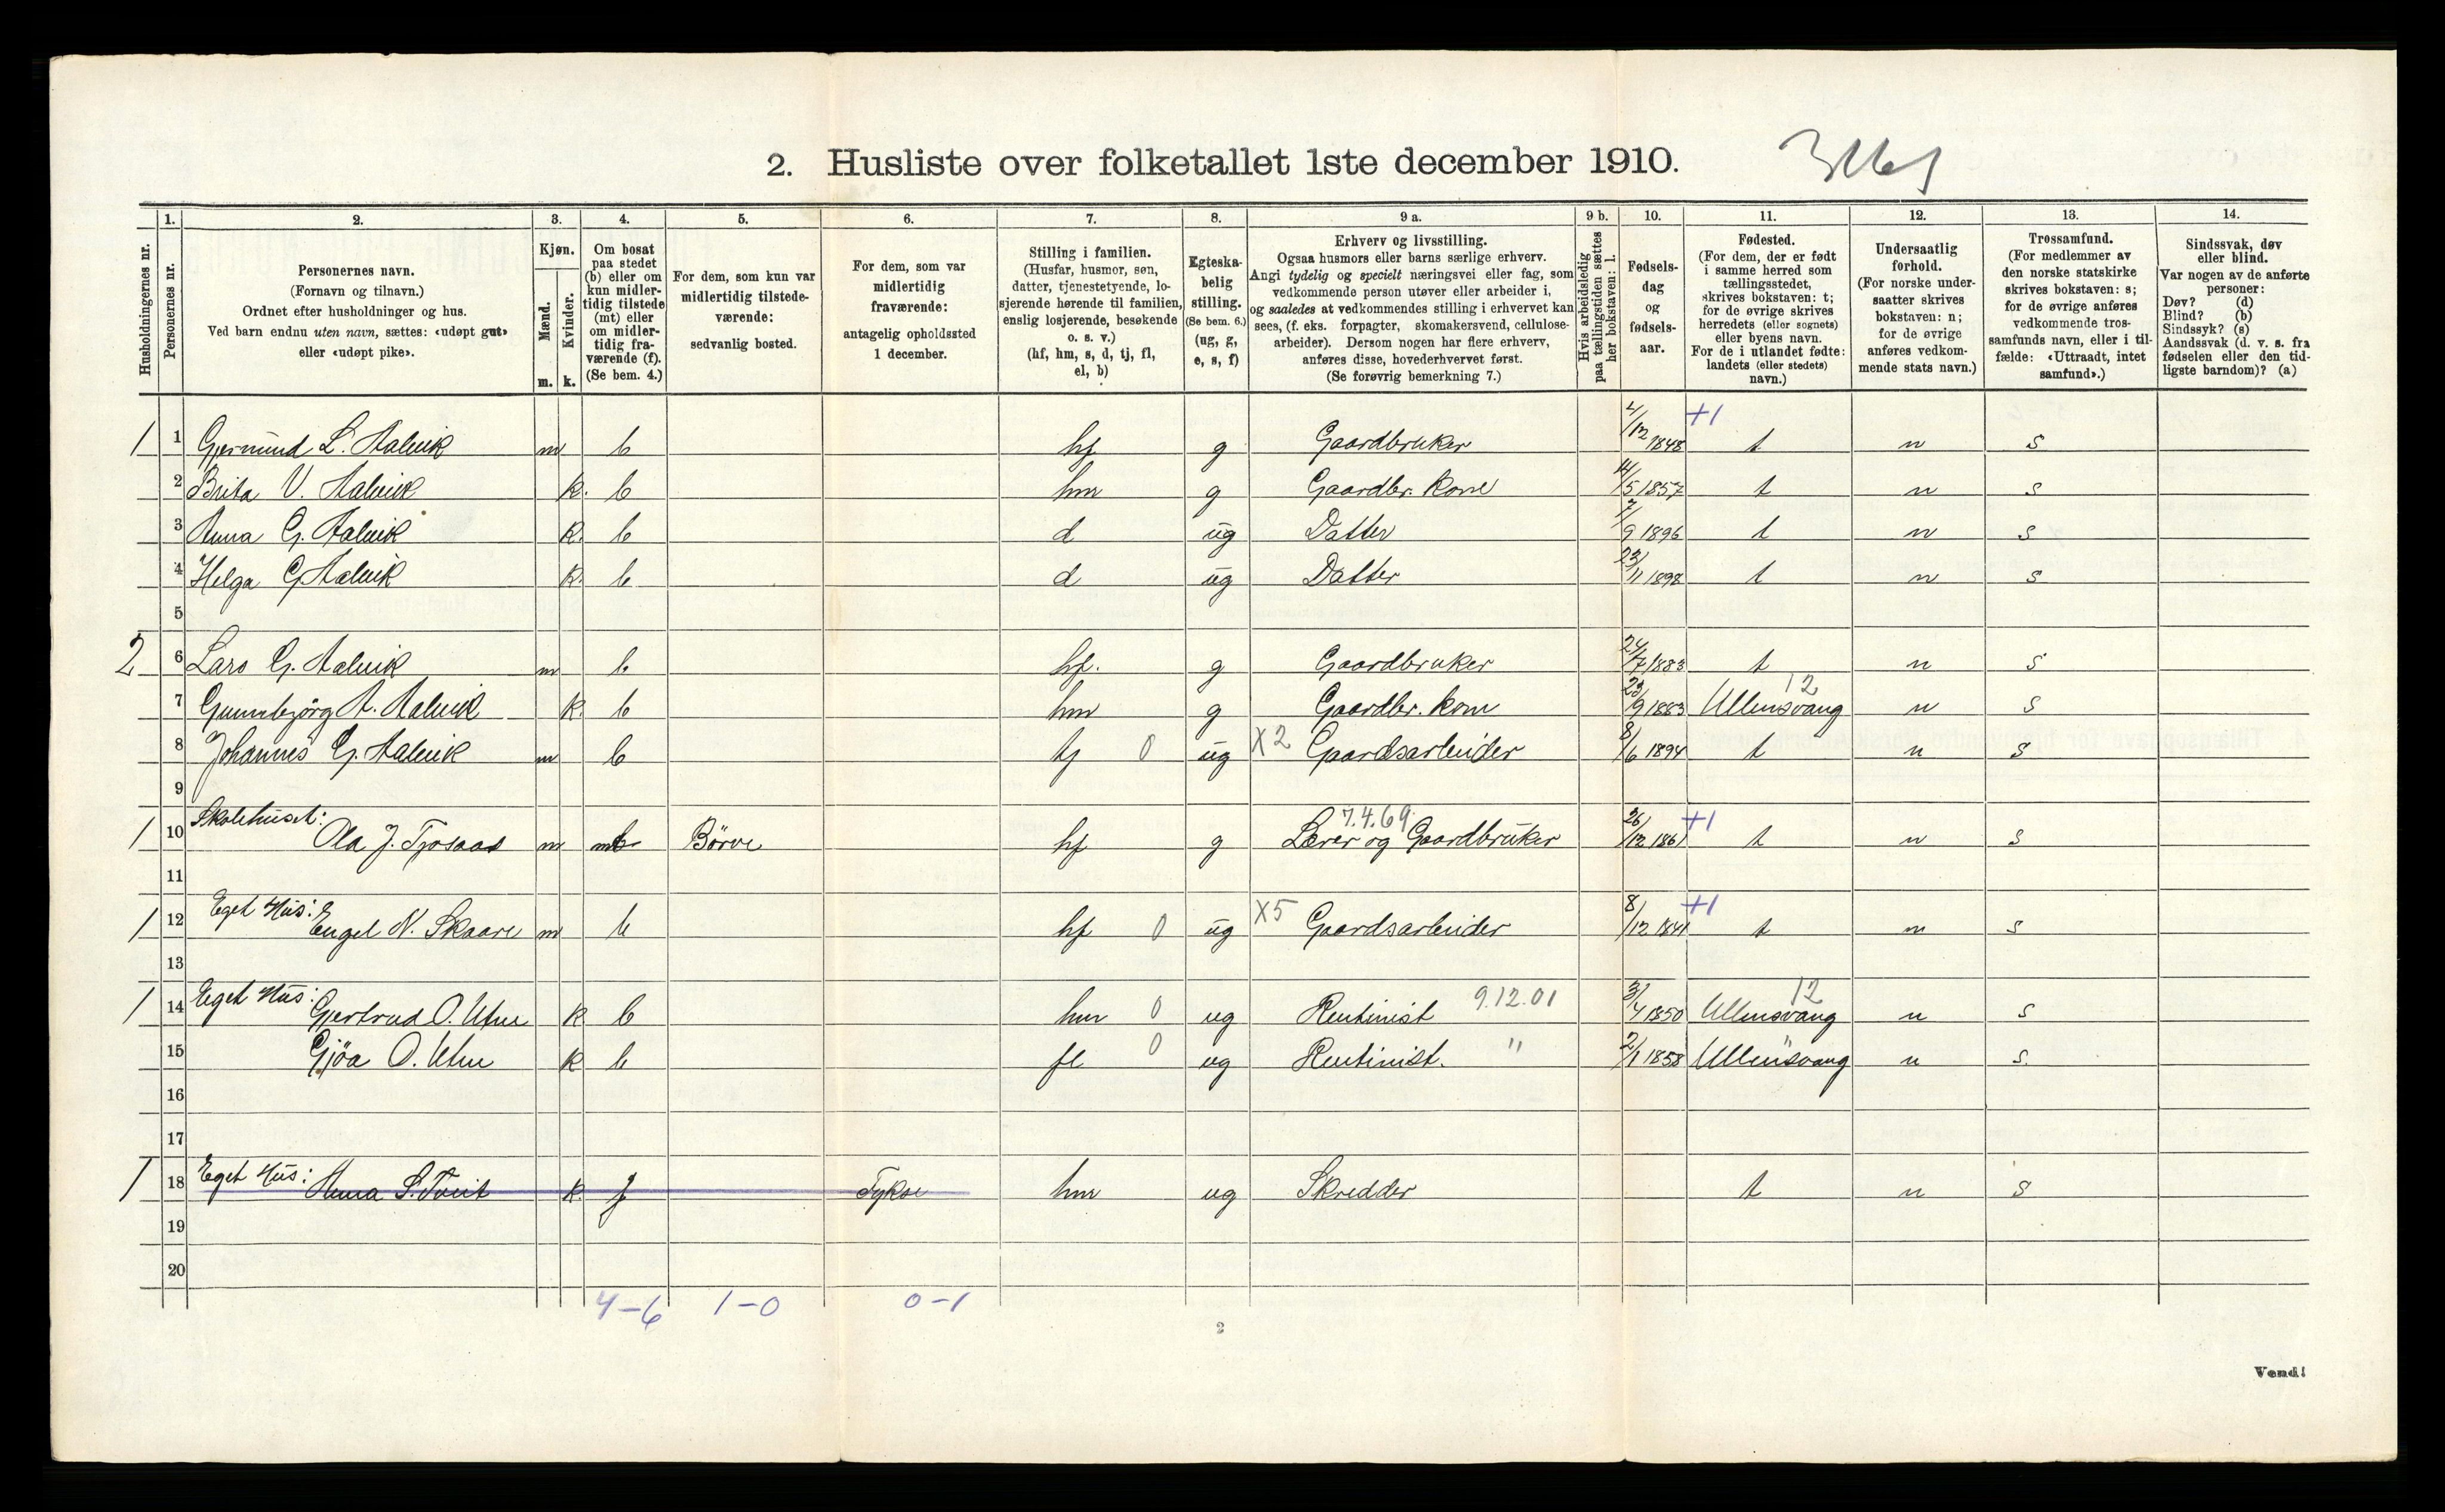 2. Husliste over folketallet 1ste december 1910.
Husholdningernes nr.
1.
Personernes nr.
2.
Personernes navn.
(Fornavn og tilnavn.)
Ordnet efter husholdninger og hus.
Ved barn endnu uten navn, sættes: «udøpt gut»
eller «udøpt pike».
3.
Kjøn.
Mænd.
Kvinder.
m. k.
4.
Om bosat
paa stedet
(b) eller om
kun midler-
tidig tilstede
(mt) eller
om midler-
tidig fra-
værende (f).
(Se bem. 4.)
5.
For dem, som kun var
midlertidig tilstede-
værende:
sedvanlig bosted.
6.
For dem, som var
midlertidig
fraværende:
antagelig opholdssted
1 december.
7.
Stilling i familien.
(Husfar, husmor, søn,
datter, tjenestetyende, lo-
sjerende hørende til familien,
enslig losjerende, besøkende
o. s. v.)
(hf, hm, s, d, tj, fl,
el, b)
8.
Egteska-
belig
stilling.
(Se bem. 6.)
(ug, g,
e, s, f)
9 a.
Erhverv og livsstilling.
Ogsaa husmors eller barns særlige erhverv.
Angi tydelig og specielt næringsvei eller fag, som
vedkommende person utøver eller arbeider i,
og saaledes at vedkommendes stilling i erhvervet kan
sees, (f. eks. forpagter, skomakersvend, cellulose-
arbeider). Dersom nogen har flere erhverv,
anføres disse, hovederhvervet først.
(Se forøvrig bemerkning 7.)
9 b.
Hvis arbeidsledig
paa tællingstiden sættes
her bokstaven: l.
10.
Fødsels-
dag
og
fødsels-
aar.
11.
Fødested.
(For dem, der er født
i samme herred som
tællingsstedet,
skrives bokstaven: t;
for de øvrige skrives
herredets (eller sognets)
eller byens navn.
For de i utlandet fødte:
landets (eller stedets)
navn.)
12.
Undersaatlig
forhold.
(For norske under-
saatter skrives
bokstaven: n;
for de øvrige
anføres vedkom-
mende stats navn.)
13.
Trossamfund.
(For medlemmer av
den norske statskirke
skrives bokstaven: s;
for de øvrige anføres
vedkommende tros-
samfunds navn, eller i til-
fælde: «Uttraadt, intet
samfund».)
14.
Sindssvak, døv
eller blind.
Var nogen av de anførte
personer:
Døv? (d)
Blind? (b)
Sindssyk? (s)
Aandssvak (d. v. s. fra
fødselen eller den tid-
ligste barndom)? (a)
1 1 Gjermund L. Aalvik m b hf g Gaardbruker 4/12 1848 +1 t n s
2 Brita V. Aalvik k. b hm g Gaardbr. kone 14/5 1857 t n s
3 Anna G. Aalvik k. b d ug Datter 7/9 1896 t n s
4 Helga G. Aalvik k. b d ug Datter 23/11 1898 t n s
5
2 6 Lars G. Aalvik m b hf. g Gaardbruker 24/7 1883 t n s
7 Gunnbjørg A. Aalvik k. b hm g Gaardbr. kone 23/9 1883 Ullensvang 12 n s
8 Johannes G. Aalvik m b tj 0 ug X2 Gaardsarbeider 8/6 1894 t n s
9
Skolehuset:
1 10 Ola J. Tjosaas m mt Børve hf g Lærer og Gaardbruker 7.4.69. 26/12 1861 +1 t n s
11
Eget Hus:
1 12 Engel N. Skaare m b hf 0 ug X5 Gaardsarbeider 8/12 1841 +1 t n s
13
Eget Hus:
1 14 Gjertrud O. Utne k b hm 0 ug Rentinist 9.12.01 3/4 1850 Ullensvang 12 n s
15 Gjöa O. Utne k b fl 0 ug Rentinist. " 2/1 1858 Ullensvang " n s.
16
17
1 18 Eget Hus: Anna S. Tveit k. f Fykse hm ug Skredder t n s
19
20
4-6 1-0 0-1
2
Vend!